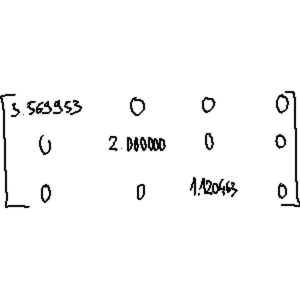 3.569953 0 0 0
0 2.000000 0 0
0 0 1.120463 0